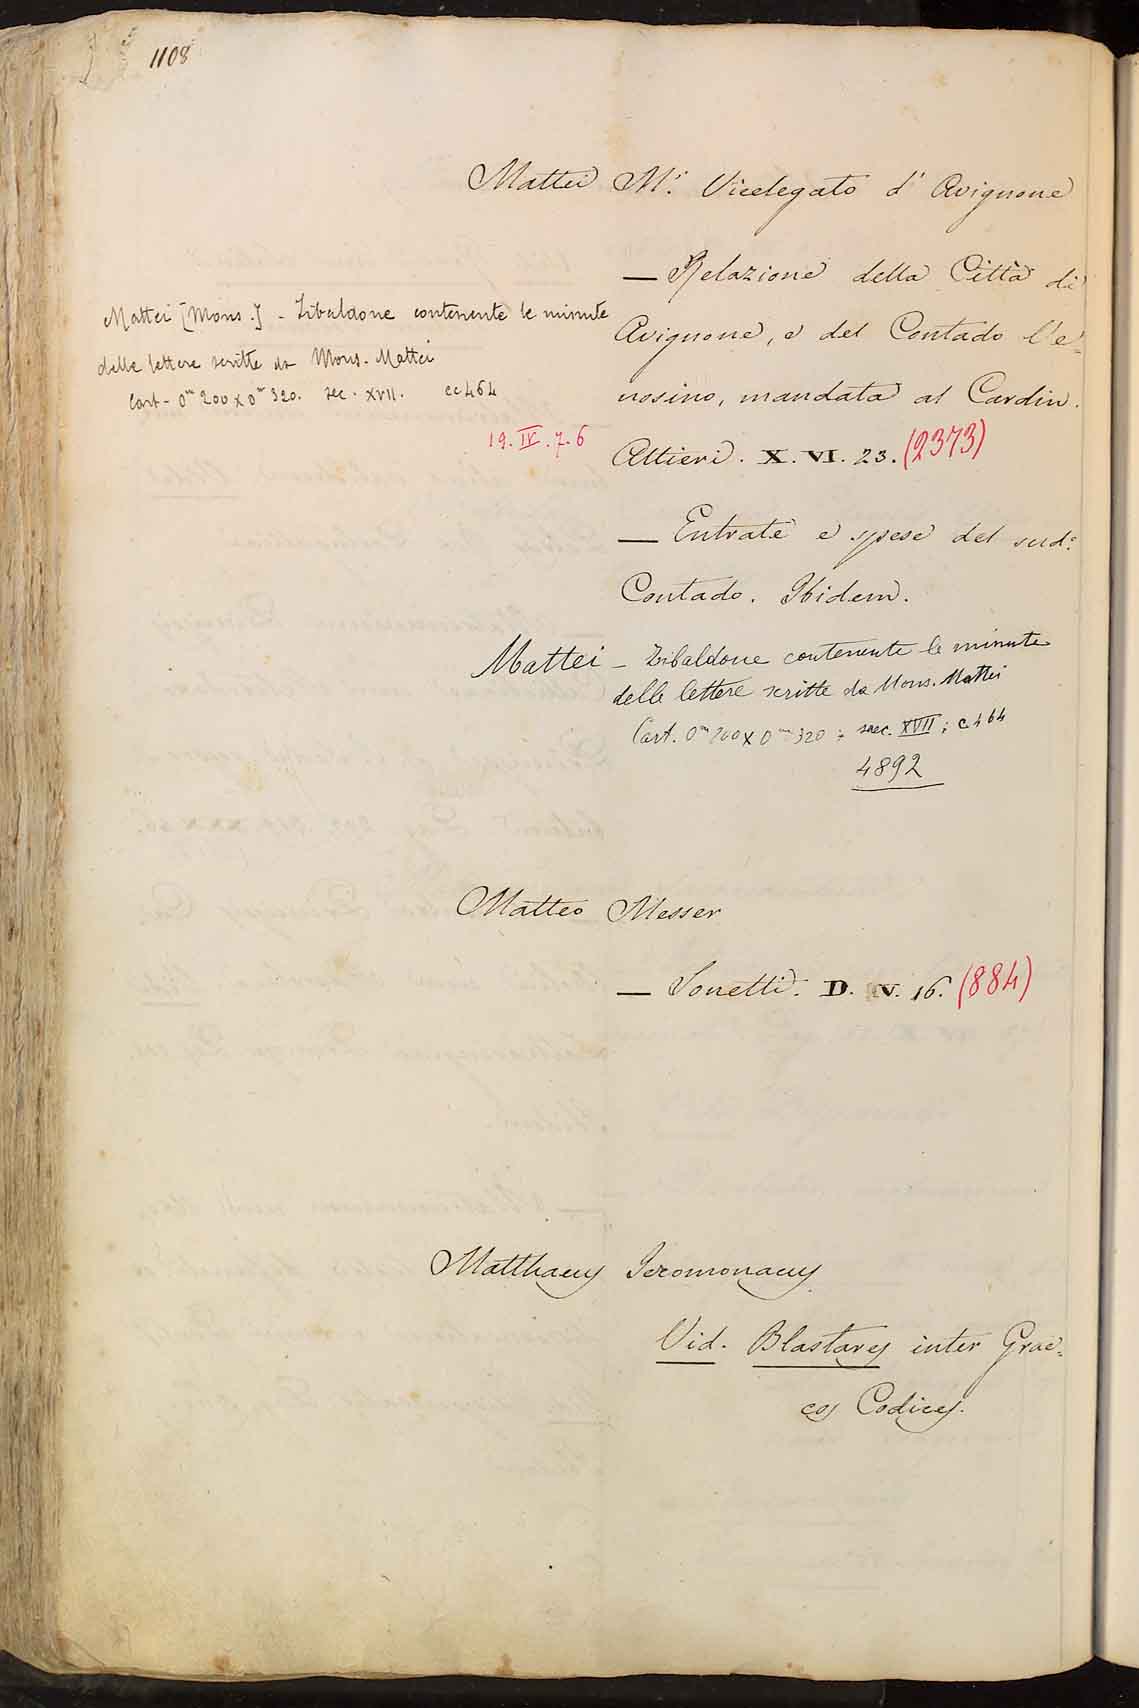 1108
Mattei M.r Vicelegato d' Avignone
— Relazione della Città di
Avignone, e del Contado Ve-
nosino, mandata al Cardin.
Altieri. X. VI. 23. (2373)
— Entrate e spese del sud.o
Contado. Ibidem.
Mattei [Mons.] - Zibaldone contenente le minute
delle lettere scritte da Mons. Mattei
Cart - 0m 200 x 0m 320. sec. XVII. cc 464
19. IV. 7. 6
Mattei - Zibaldone contenente le minute
delle lettere scritte da Mons. Mattei
Cart. 0m 200 x 0m 320; saec. XVII; c. 464
4892
Matteo Messer
— Sonetti. D. V. 16. (884)
Matthaeus Ieromonacus
Vid. Blastares inter Grae-
cos Codices.